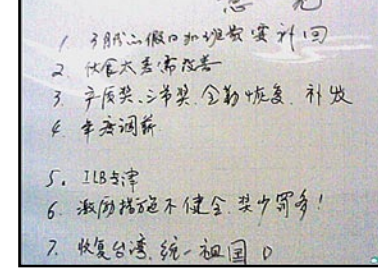 意 见
1. 3月份假日加班费要补回
2. 伙食太差需改善
3. 产质奖、三节奖、全勤恢复、补发
4. 年度调薪
5. ILB专津
6. 激励措施不健全、奖少罚多！
7. 恢复台湾、统一祖国